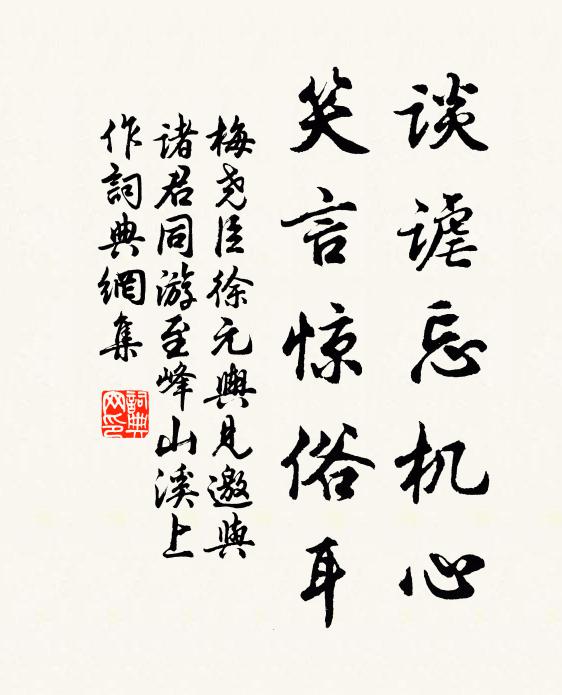 谈谑忘机心
笑言惊俗耳
梅尧臣徐元舆见邀与
诸君同游至峰山溪上
作詞典網集
詞典
网印